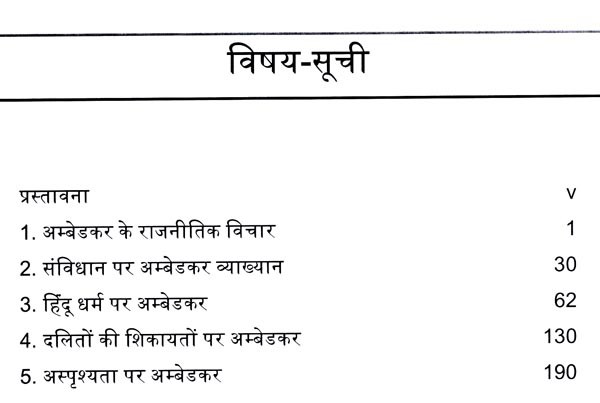 विषय-सूची
प्रस्तावना v
1. अम्बेडकर के राजनीतिक विचार 1
2. संविधान पर अम्बेडकर व्याख्यान 30
3. हिंदू धर्म पर अम्बेडकर 62
4. दलितों की शिकायतों पर अम्बेडकर 130
5. अस्पृश्यता पर अम्बेडकर 190